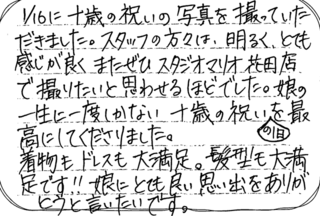 1/16に十歳の祝いの写真を撮っていた
だきました。スタッフの方々は、明るく、とても
感じが良く またぜひ スタジオマリオ 佐田店
で撮りたいと思わせるほどでした。娘の
一生に一度しかない 十歳の祝いを最
高にしてくださりました。の1日
着物もドレスも大満足。髪型も大満
足です!! 娘にとても良い思い出をありが
とうと言いたいです。